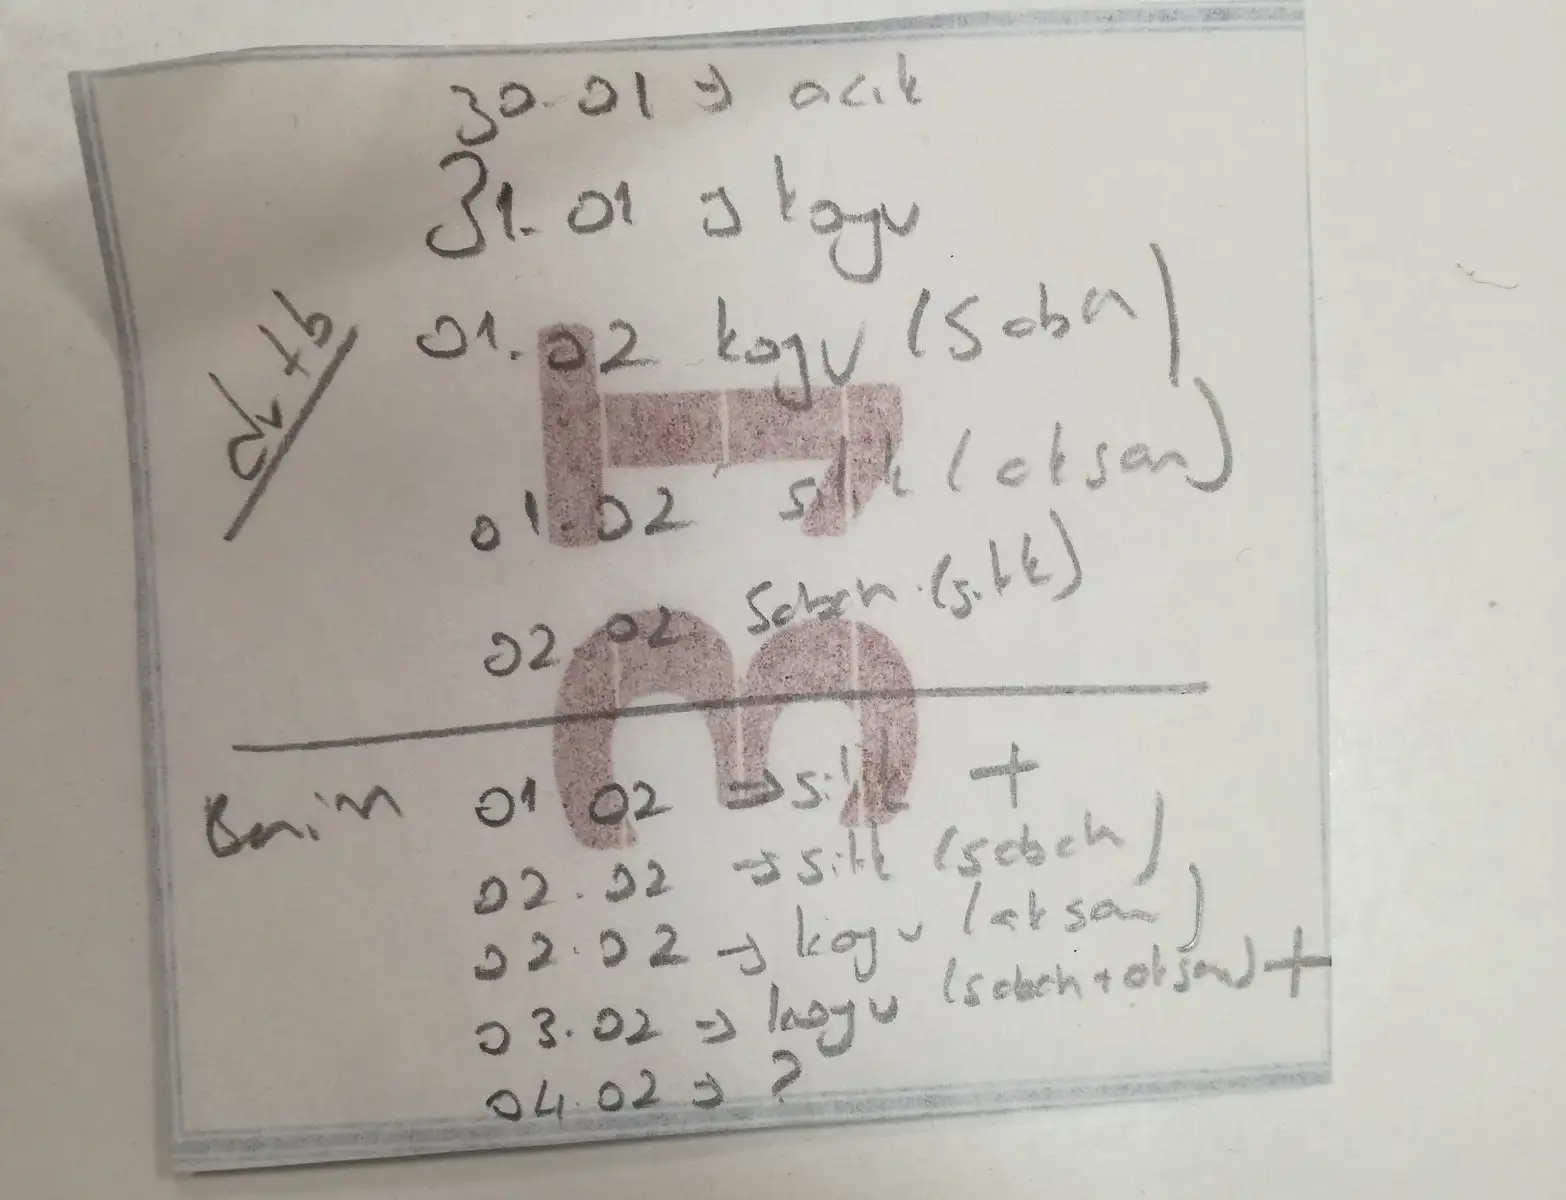 30.01 → acık
31.01 → koyu
01.02 koyu (Sabah)
01.02 silik (aksam)
02.02 Sabah (silik)
Benim 01.02 → silik +
02.02 → silik (sabah)
02.02 → koyu (aksam)
03.02 → koyu (sabah + aksam) +
04.02 → ?